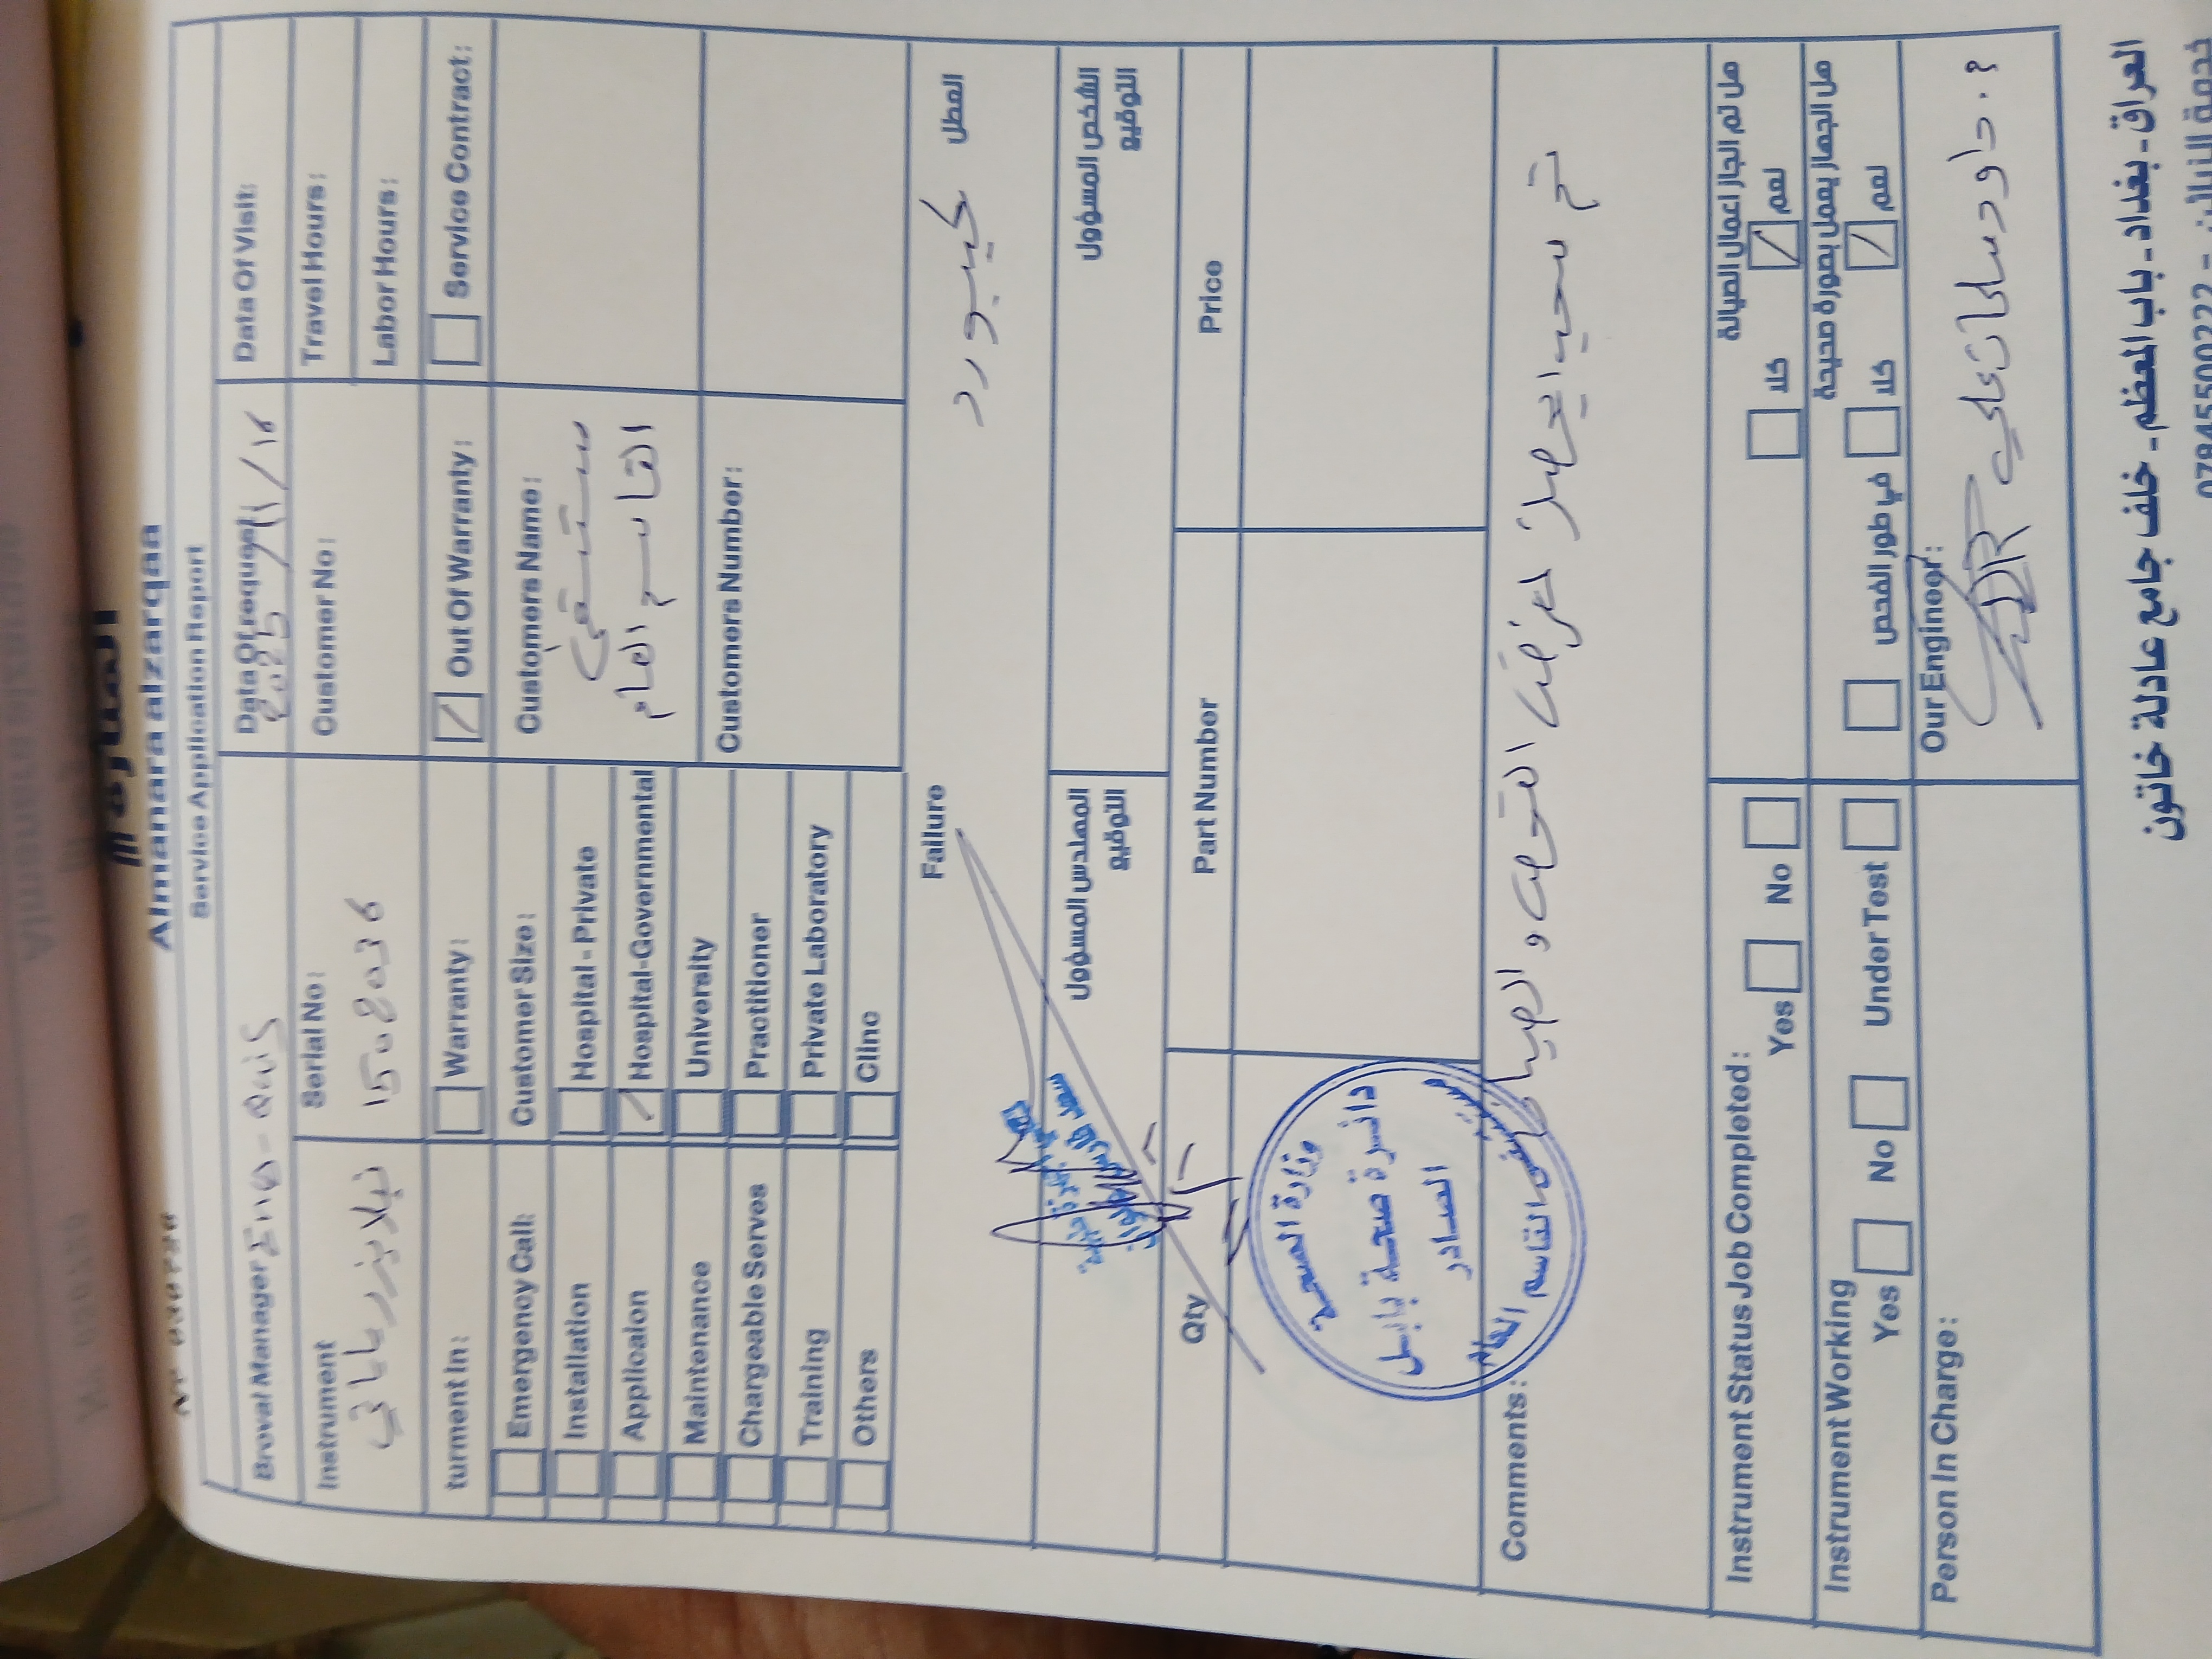 المنارة
Almanara alzarqaa
Service Application Report
Broval Manager
Data Of request:
2025/11/16
Data Of Visit:
Instrument
نبلايزر ياباني
Serial No:
1508036
Customer No:
Travel Hours:
Labor Hours:
turment In:
Warranty:
Out Of Warranty:
Service Contract:
Emergency Call:
Installation
Applicaion
Maintenance
Chargeable Serves
Training
Others
Customer Size:
Hospital - Private
Hospital-Governmental
University
Practitioner
Private Laboratory
Clinc
Customers Name:
مستشفى
القاسم العام
Customers Number:
Failure
العطل
كيبورد
المهندس المسؤول
التوقيع
الشخص المسؤول
التوقيع
Qty
Part Number
Price
وزارة الصحة
دائرة صحة بابل
الصادر
مستشفى القاسم العام
Comments:
تم سحب الجهاز لغرض الفحص و الصيانة
Instrument Status Job Completed:
Yes
No
هل تم انجاز اعمال الصيانة
نعم
كلا
Instrument Working
Yes
No
Under Test
هل الجهاز يعمل بصورة صحيحة
نعم
كلا
في طور الفحص
Person In Charge:
Our Engineer:
م. داود سلمان علي
07845500222